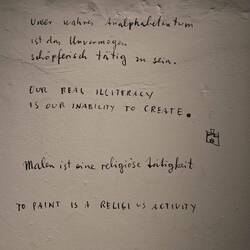 Unser wahres Analphabetentum
ist das Unvermögen
schöpferisch tätig zu sein.
OUR REAL ILLITERACY
IS OUR INABILITY TO CREATE.
Malen ist eine religiöse Tätigkeit
TO PAINT IS A RELIGI US ACTIVITY